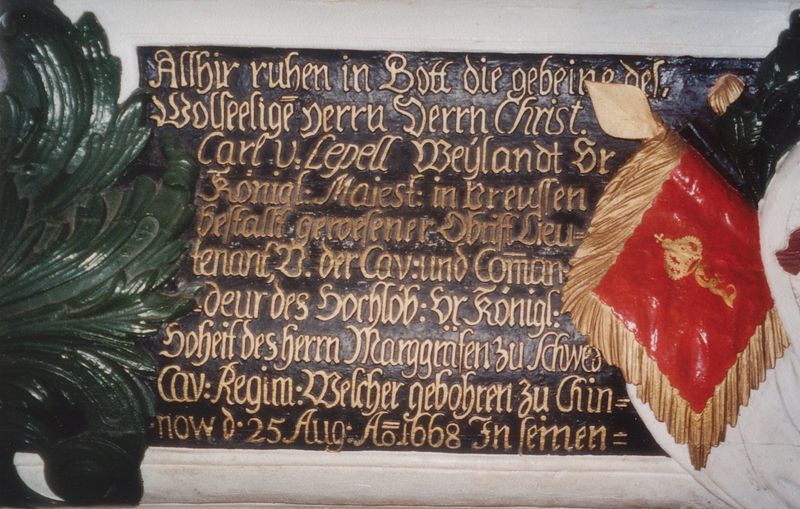 Allhir ruhen in Gott die gebeine des.
Wolseelige͞ Herrn Herrn Christ.
Carl v. Lepell Weÿlandt Sr
Königl: Maiest: in Preussen
bestallt gewesener Obrist Lieu-
tenant V. der Cav: und Com͞an-
deur des Hochlöb: Sr Königl:
Hoheit des Herrn Marggrafen zu Schwed
Cav: Regim: Welcher gebohren zu Chin=
now d: 25 Aug: Ao 1668 In seinen=